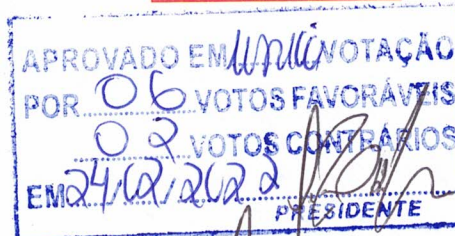 APROVADO EM única VOTAÇÃO
POR 06 VOTOS FAVORÁVEIS
02 VOTOS CONTRÁRIOS
EM 24/02/2022
PRESIDENTE